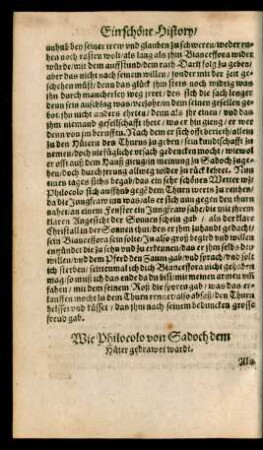 Ein schöne History/
unhub bey seiner trew und glauben zu schweren/weder ruͤ-
hen noch rasten wolt/als lang als ihm Biancefforа wider
würde/mit dem aufffhund/dem rath Dariſ folg zu geben/
aber das nicht nach seinem willen/ sonder mit der zeit ge-
schehen müst/denn das glück ihm stets noch widrig was
ihn durch mancherley weg jrret/das sich die sach lenger
denn sein anschlag was/verzohe/in dem seinen gesellen ge-
bot/ihn nicht andern ehrete/denn als ihr einen/ und das
ihm niemand gesellschafft thete/wo er hin gieng/er wer
denn von jm beruffen. Nach dem er sich offt berieth/allein
zu den Hütern des Thurns zu gehen/sein kundtschafft zu
nemen/doch nie füglicher ursach gedencken mocht/wiewol
er offt auß dem Hauß gieng/in meinung zu Sadoch zuge-
hen/doch durch jrrung allweg wider zu rück kehret. Nun
eines tages sichs begab/das ein sehr schönes Wetter wz/
Philocolo sich auffhub gegē dem Thurn werts zu reyten/
da die Jungfraw inn was/als er sich nun gegen den thurn
nahet/an einem Fenster ein Jungfraw sahe/die mit ihrem
klaren Angesicht der Sonnen schein gab/ als der klare
Christall an der Sonnen thut/des er ihm zuhandt gedacht/
sein Biancefforа sein solte/In also groß begird und willen
enzündt/die zu sehn und zu erkennen/das er ihm selbs be-
willen/und dem Pferd den Zaum gab/und sprach/und solt
ich sterben/seitenmal ich dich Biancefforа nicht gehaben
mag/so muß ich das ende da du bist mit meinen armen um-
fahen/mit dem seinem Roß die sporen gab/was das er-
lauffen mocht zu dem Thurn rennet/also absaß/den Thurn
helsset und küsset/das ihm nach seinem beduncken grosse
freud gab.
Wie Philocolo von Sadoch dem
Hüter gedrawet wardt.
Als